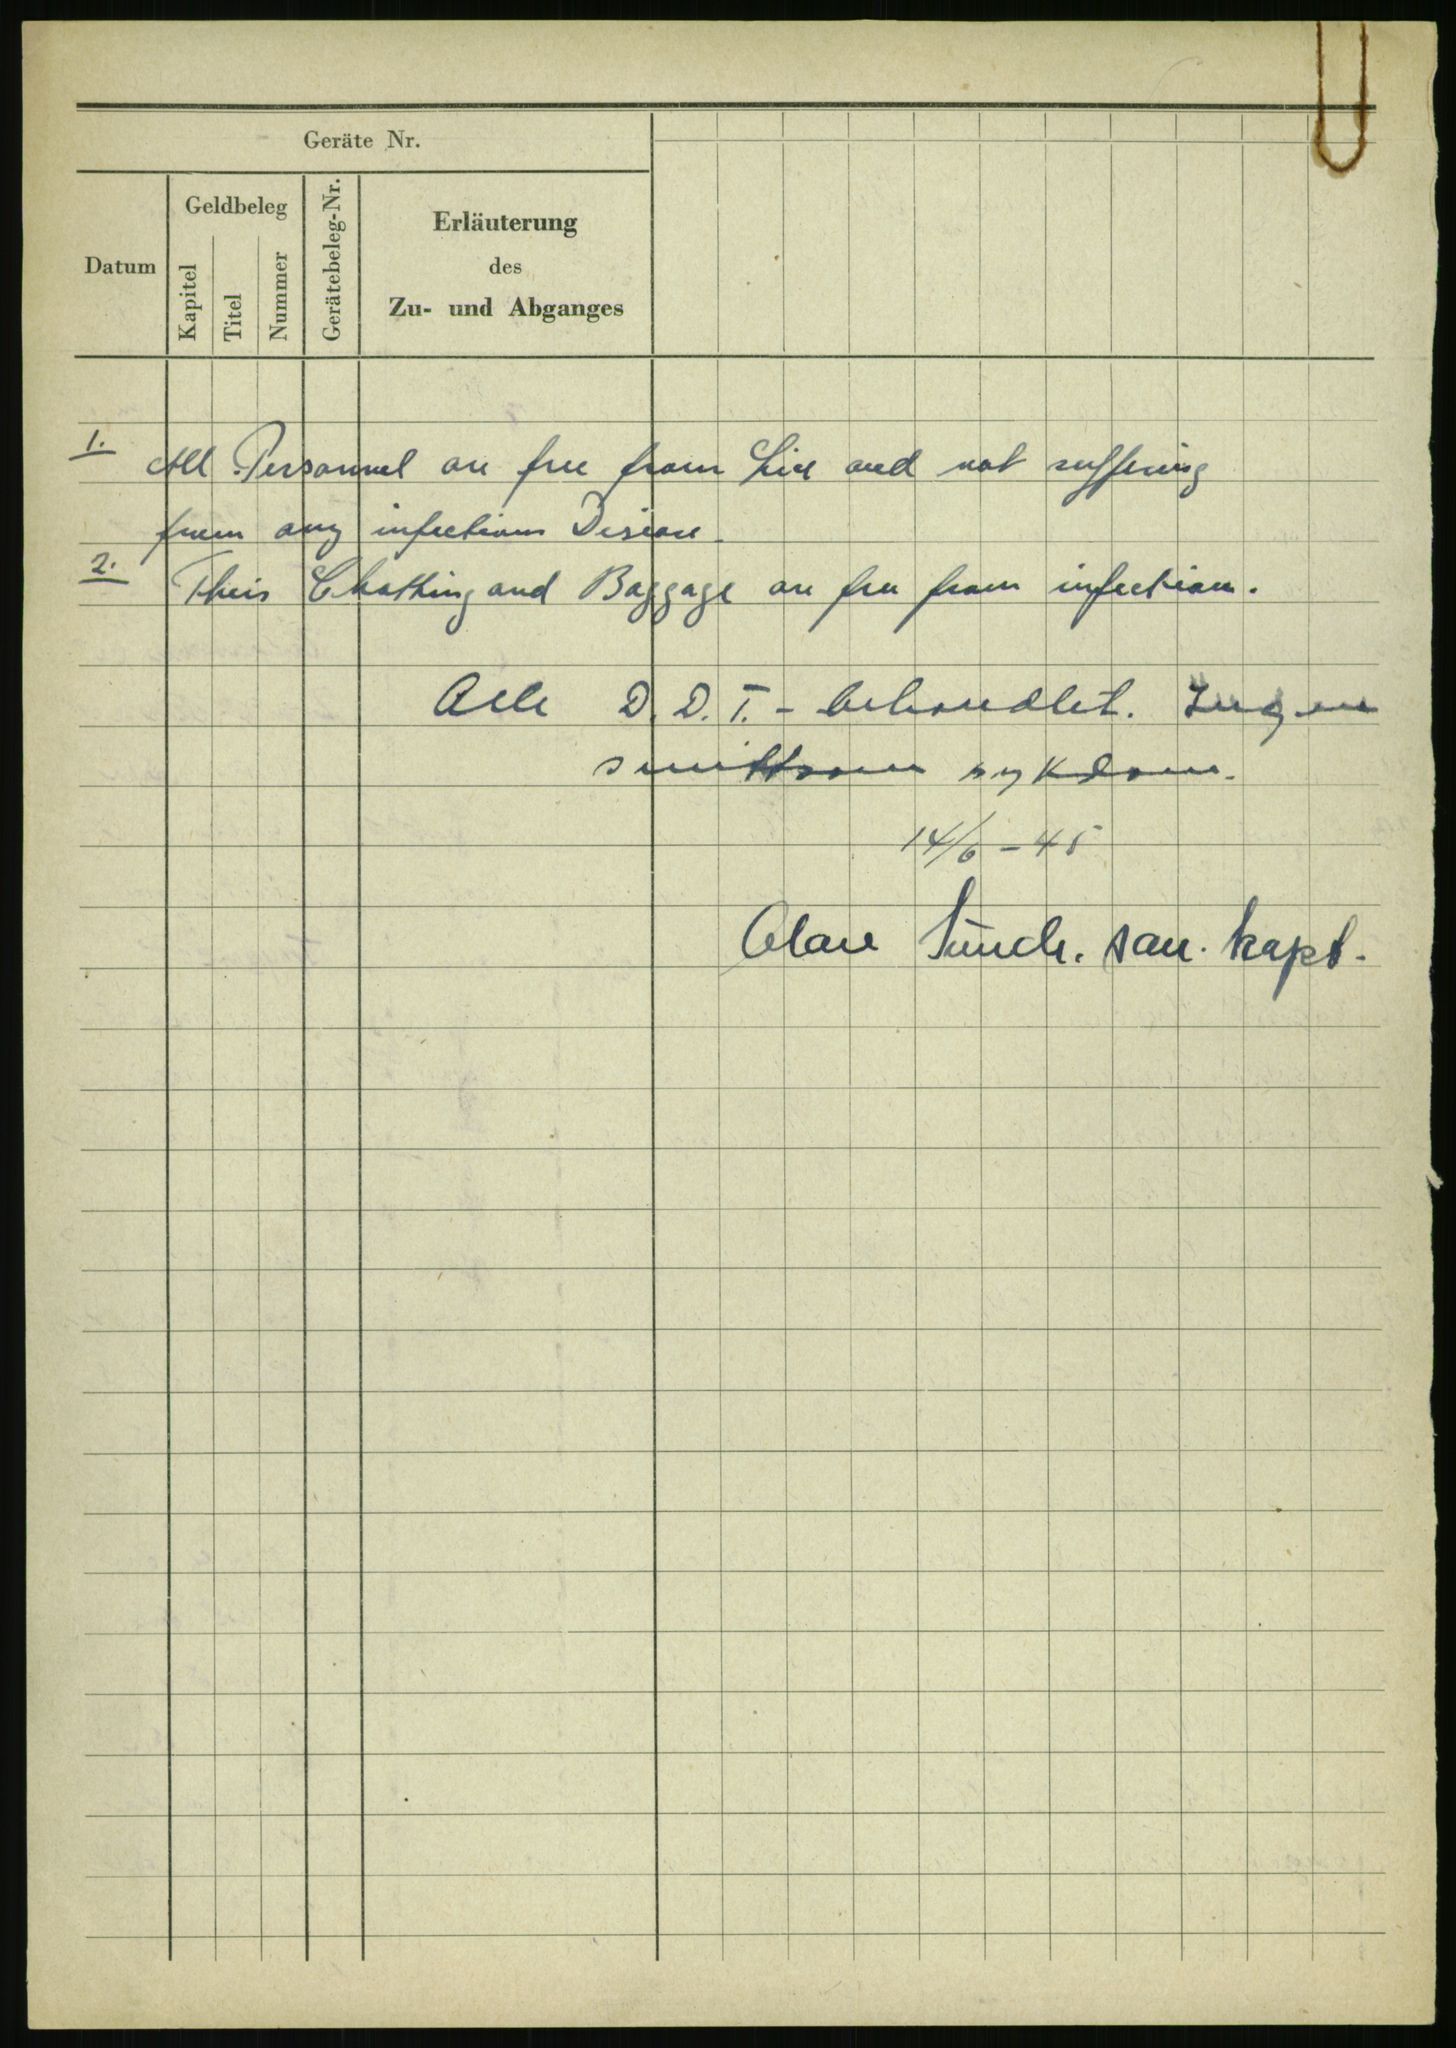 Geräte Nr.
Datum
Geldbeleg
Kapitel
Titel
Nummer
Gerätebeleg-Nr.
Erläuterung
des
Zu- und Abganges
1. All Personnel are free from Lice and not suffering
from any infectious Disease.
2. Their Clothing and Baggage are free from infection.
Alle D.D.T. - behandlet. Ingen
smittsom sykdom.
14/6 - 45
san. kapt.